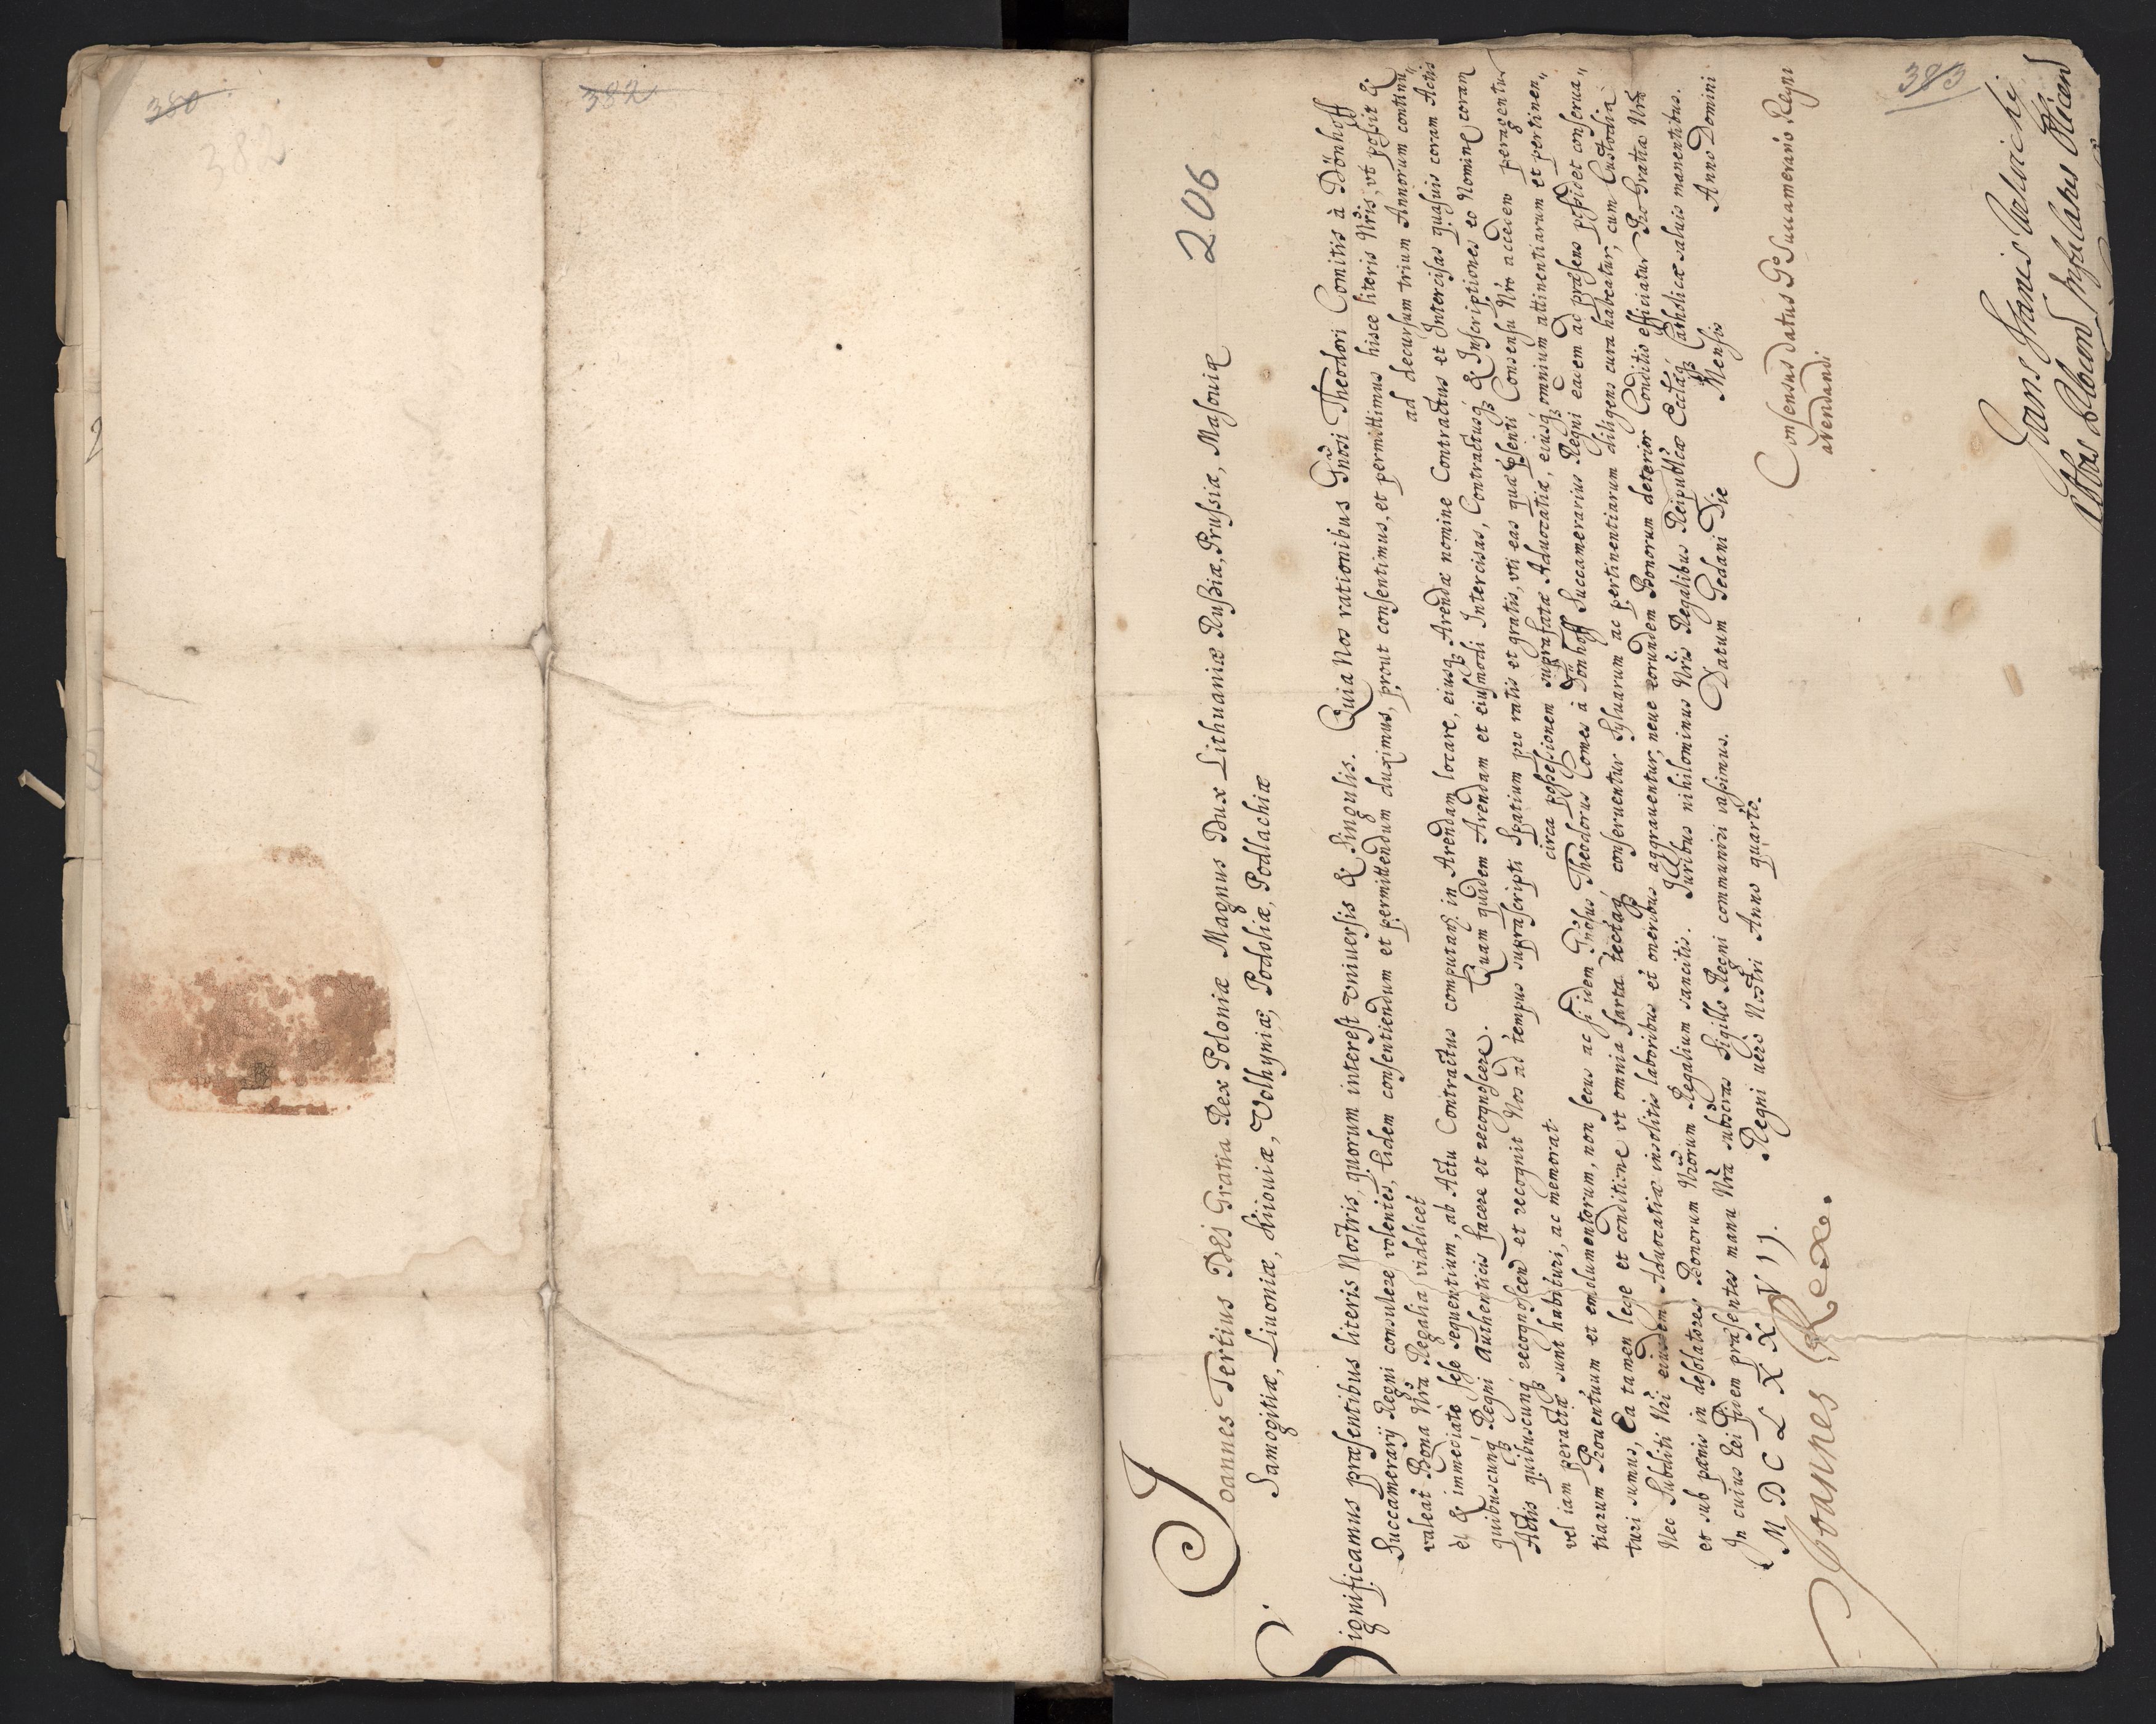 380
382
382
206
383
Joannes Tertius Dei Gratia Rex Poloniæ Magnus Dux Lithuaniæ Rußiæ, Prußiæ, Masouiæ
Samogitiæ, Liuoniæ, Kiiouiæ, Volhyniæ, Podoliæ, Podlachiæ
Significamus præsentibus literis Nostris, quorum interest vniuersis & singulis. Quia Nos rationibus Gnosi Theodori Comitis à Dönhoff
Succamerarij Regni consulere volentes, Eidem consentiendum et permittendum duximus, prout consentimus, et permittimus hisce literis Nris, vt possit &
valeat Bona Nra Regalia videlicet ad decursum trium Annorum continu"
è & immediatè sese sequentium, ab Actu Contractus computan in Arendam locare, eiusq Arendæ nomine Contractus et Intercisas quasuis coram Actis
quibuscunq Regni Authenticis facere et recognoscere. Quam quidem Arendam et eiusmodi Intercisas, Contractusq & Inscriptiones eo Nomine coram
Actis quibuscunq recognoscend et recognit Nos ad tempus suprascripti Spatium pro ratis et gratis, vti eas quæ psenti Consensu Nro accedem peragentur
vel iam peractæ sunt habituri, ac memorat circa possessionem suprafatæ Aduocatiæ, eiusq omnium attinentiarum et pertinen"
tiarum Prouentuum et emolumentorum, non secus ac si idem Gnosus Theodorus Comes à Dönhoff Succamerarius Regni eadem ad præsens possidet conserua"
turi sumus, Ea tamen lege et conditione vt omnia sarta tectaq conseruentur Syluarum ac pertinentiarum diligens cura habeatur, cum Custodia
Nec Subditi Nri eiusdem Aduocatiæ insolitis laboribus et oneribus aggrauentur, neue eorundem Bonorum deterior Conditio efficiatur Pro Gratia Nra
et sub pœnis in desolatores Bonorum Nrorum Regalium sancitis. Juribus nihilominus Nris Regalibus Reipublicæ Eccläq Catholicæ saluis manentibus.
In cuius rei fidem præsentes manu Nra subscras Sigillo Regni communiri iussimus. Datum Gedani Die Mensis Anno Domini
MDCLXXVII. Regni uero Nostri Anno quarto.
Joannes Rex.
Consensus datus Gso Succamerario Regni
arendandi